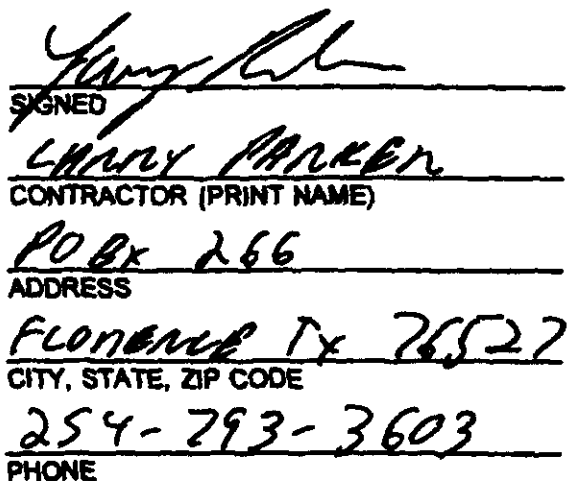 SIGNED
LARRY PARKER
CONTRACTOR (PRINT NAME)
PO BX 266
ADDRESS
FLORENCE TX 76527
CITY, STATE, ZIP CODE
254-793-3603
PHONE